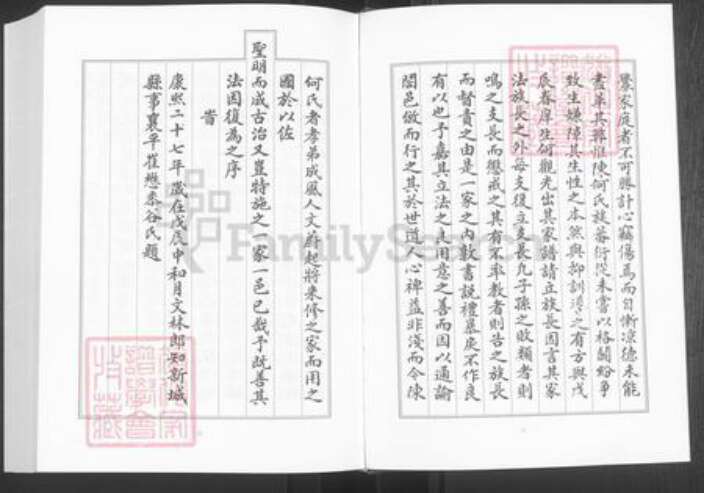 釁家庭者不可勝計心竊傷焉而自慚涼德未能
盡革其弊惟陳何氏族蕃衍從未嘗以格鬪紛爭
致生嫌隙其生性之本然與抑訓導之有方與戊
辰春庠生何觀光出其家譜請立族長因言其家
法族長之外每支復立支長凡子孫之敗類者則
鳴之支長而懲戒之其有不率教者則告之族長
而督責之由是一家之內敦書說禮暴戾不作良
有以也予嘉其立法之良用意之善而因以通諭
闔邑倣而行之其於世道人心裨益非淺而今陳
何氏者孝弟成風人文蔚起將來修之家而用之
國於以佐
聖明而成古治又豈特施之一家一邑已哉予既善其
法因復為之序
旹
康熙二十七年歲在戊辰中和月文林郎知新城
縣事襄平崔懋黍谷氏題
FamilySearch